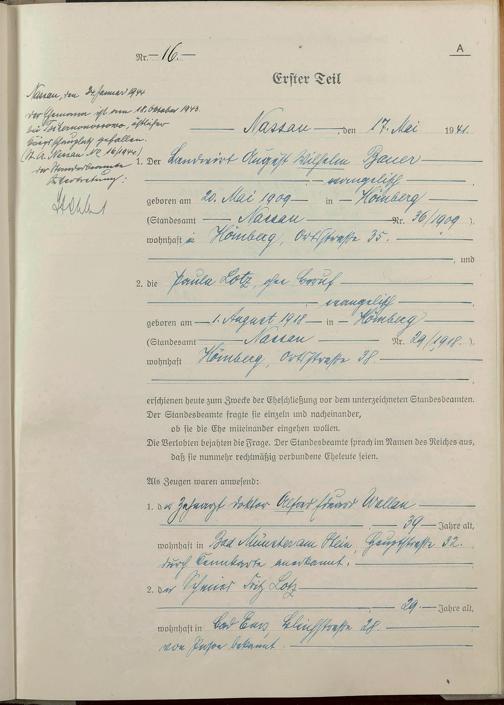 A
Nr. 16.
Erster Teil
Nassau, den 24. Januar 1944
der Ehemann ist am 18. Oktober 1943
bei östlicher
Kriegsschauplatz gefallen.
(St. A. Nassau Nr.
der Standesbeamte
In Vertretung:
Nassau, den 17. Mai 1941.
1. Der Landwirt August Wilhelm Bauer
, evangelisch
geboren am 20. Mai 1909 in Hömberg
(Standesamt Nassau Nr. 36/1909).
wohnhaft in Hömberg, Ortsstraße 35.
, und
2. die Paula Lotz, ohne Beruf
, evangelisch
geboren am 1. August 1918 in Hömberg
(Standesamt Nassau Nr. 29/1918.)
wohnhaft Hömberg, Ortsstraße 38.
erschienen heute zum Zwecke der Eheschließung vor dem unterzeichneten Standesbeamten.
Der Standesbeamte fragte sie einzeln und nacheinander,
ob sie die Ehe miteinander eingehen wollen.
Die Verlobten bejahten die Frage. Der Standesbeamte sprach im Namen des Reiches aus,
daß sie nunmehr rechtmäßig verbundene Eheleute seien.
Als Zeugen waren anwesend:
1. der Zahnarzt Doktor Alfred Eduard Wallau
, 39 Jahre alt,
wohnhaft in Bad Münster am Stein, Hauptstraße 32.
durch Kennkarte anerkannt.
2. der Schreiner Fritz Lotz
29 Jahre alt,
wohnhaft in Bad Ems, Bleichstraße 28.
von Person bekannt.